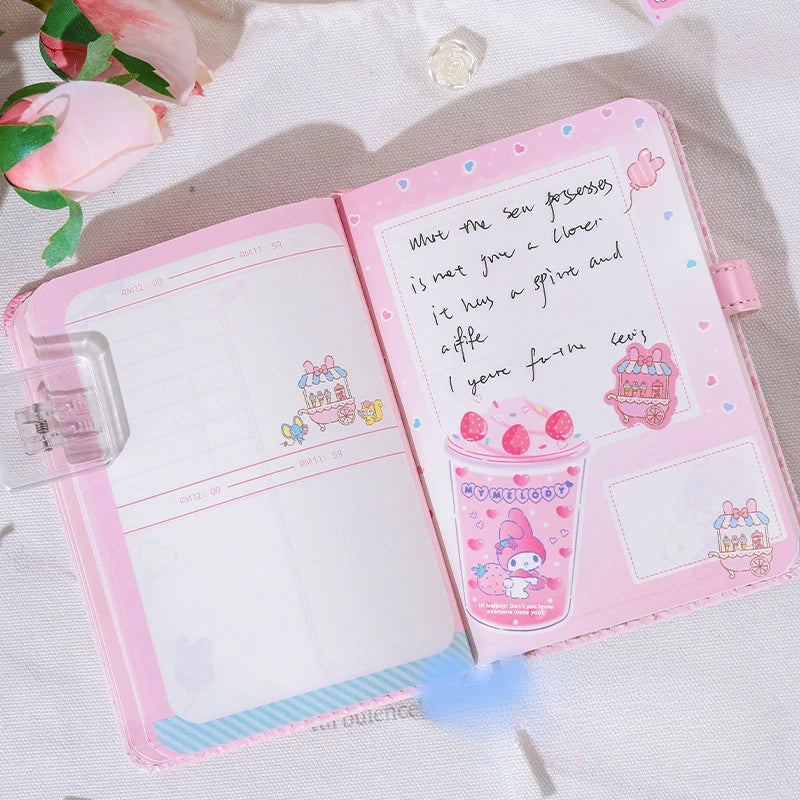 AM12: 00
AM11: 59
PM12: 00
PM11: 59
what the sea possesses
is not just a clover
it has a spirit and
a life
I yearn for the sea's
MY MELODY
Hi Melody! Don't you know
everyone loves you?
turbulence